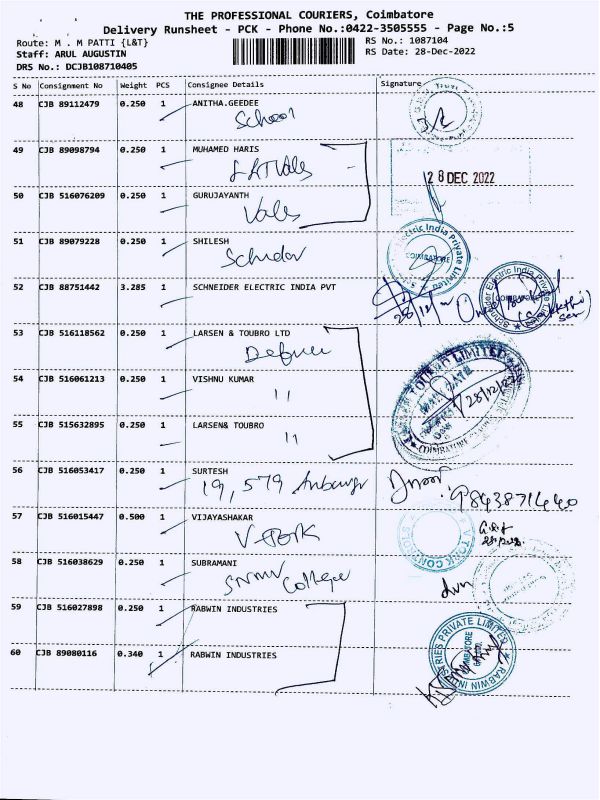 THE PROFESSIONAL COURIERS, Coimbatore
Delivery Runsheet - PCK - Phone No.:0422-3505555 - Page No.:5
Route: M . M PATTI {L&T}
RS No.: 1087104
Staff: ARUL AUGUSTIN
RS Date: 28-Dec-2022
DRS No.: DCJB108710405
S No Consignment No Weight PCS Consignee Details Signature
48 CJB 89112479 0.250 1 ANITHA.GEEDEE
School
49 CJB 89098794 0.250 1 MUHAMED HARIS
28 DEC 2022
50 CJB 516076209 0.250 1 GURUJAYANTH
51 CJB 89079228 0.250 1 SHILESH
Electric India Private Limited
COIMBATORE
52 CJB 88751442 3.285 1 SCHNEIDER ELECTRIC INDIA PVT
Schneider Electric India Private
COIMBATORE
28/12/22
53 CJB 516118562 0.250 1 LARSEN & TOUBRO LTD
54 CJB 516061213 0.250 1 VISHNU KUMAR
11
TOUBRO LIMITED
28/12/22
COIMBATORE
55 CJB 515632895 0.250 1 LARSEN& TOUBRO
11
56 CJB 516053417 0.250 1 SURTESH
19, 579
9843871440
57 CJB 516015447 0.500 1 VIJAYASHAKAR
V-TORK
V TORK
58 CJB 516038629 0.250 1 SUBRAMANI
SNMV College
59 CJB 516027898 0.250 1 RABWIN INDUSTRIES
60 CJB 89080116 0.340 1 RABWIN INDUSTRIES
RABWIN INDUSTRIES PRIVATE LIMITED